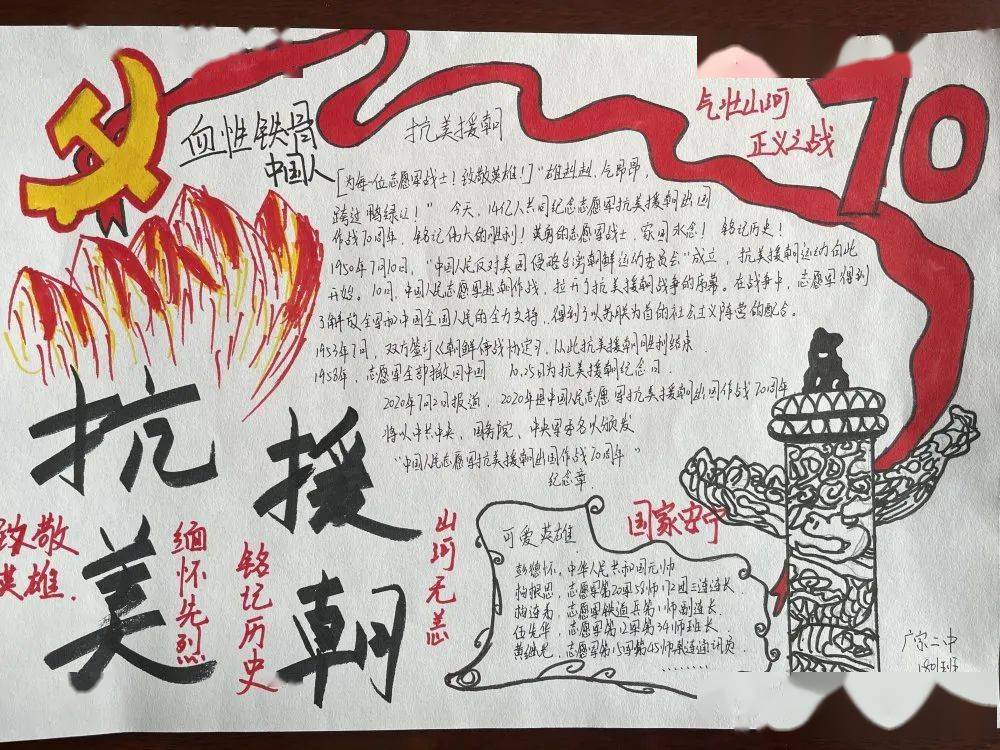 血性铁骨
中国人
抗美援朝
气壮山河
正义之战
70
[为每一位志愿军战士！致敬英雄！]"雄赳赳，气昂昂，
跨过鸭绿江！" 今天，14亿人共同纪念志愿军抗美援朝出国
作战70周年，铭记伟大的胜利！英勇的志愿军战士，家国永念！铭记历史！
1950年7月10日，"中国人民反对美国侵略台湾朝鲜运动委员会"成立，抗美援朝运动自此
开始。10月，中国人民志愿军赴朝作战，拉开了抗美援朝战争的序幕。在战争中，志愿军得到
了解放全军和中国全国人民的全力支持，得到了以苏联为首的社会主义阵营的配合。
1953年7月，双方签订《朝鲜停战协定》，从此抗美援朝胜利结束.
1958年，志愿军全部撤回中国 10.25日为抗美援朝纪念日.
2020年7月2日报道，2020年是中国人民志愿军抗美援朝出国作战70周年
将以中共中央、国务院、中央军委名义颁发
"中国人民志愿军抗美援朝出国作战70周年"
纪念章.
抗
美
援
朝
致敬
英雄.
缅怀先烈
铭记历史
山河无恙
国家安宁
可爱英雄
彭德怀，中华人民共和国元帅
杨根思，志愿军第20军58师172团三连连长
杨连弟，志愿军铁道兵第1师副连长.
伍先华，志愿军第12军第34师班长.
黄继光，志愿军第15军第45师某连通讯员.
........
二中
1801班